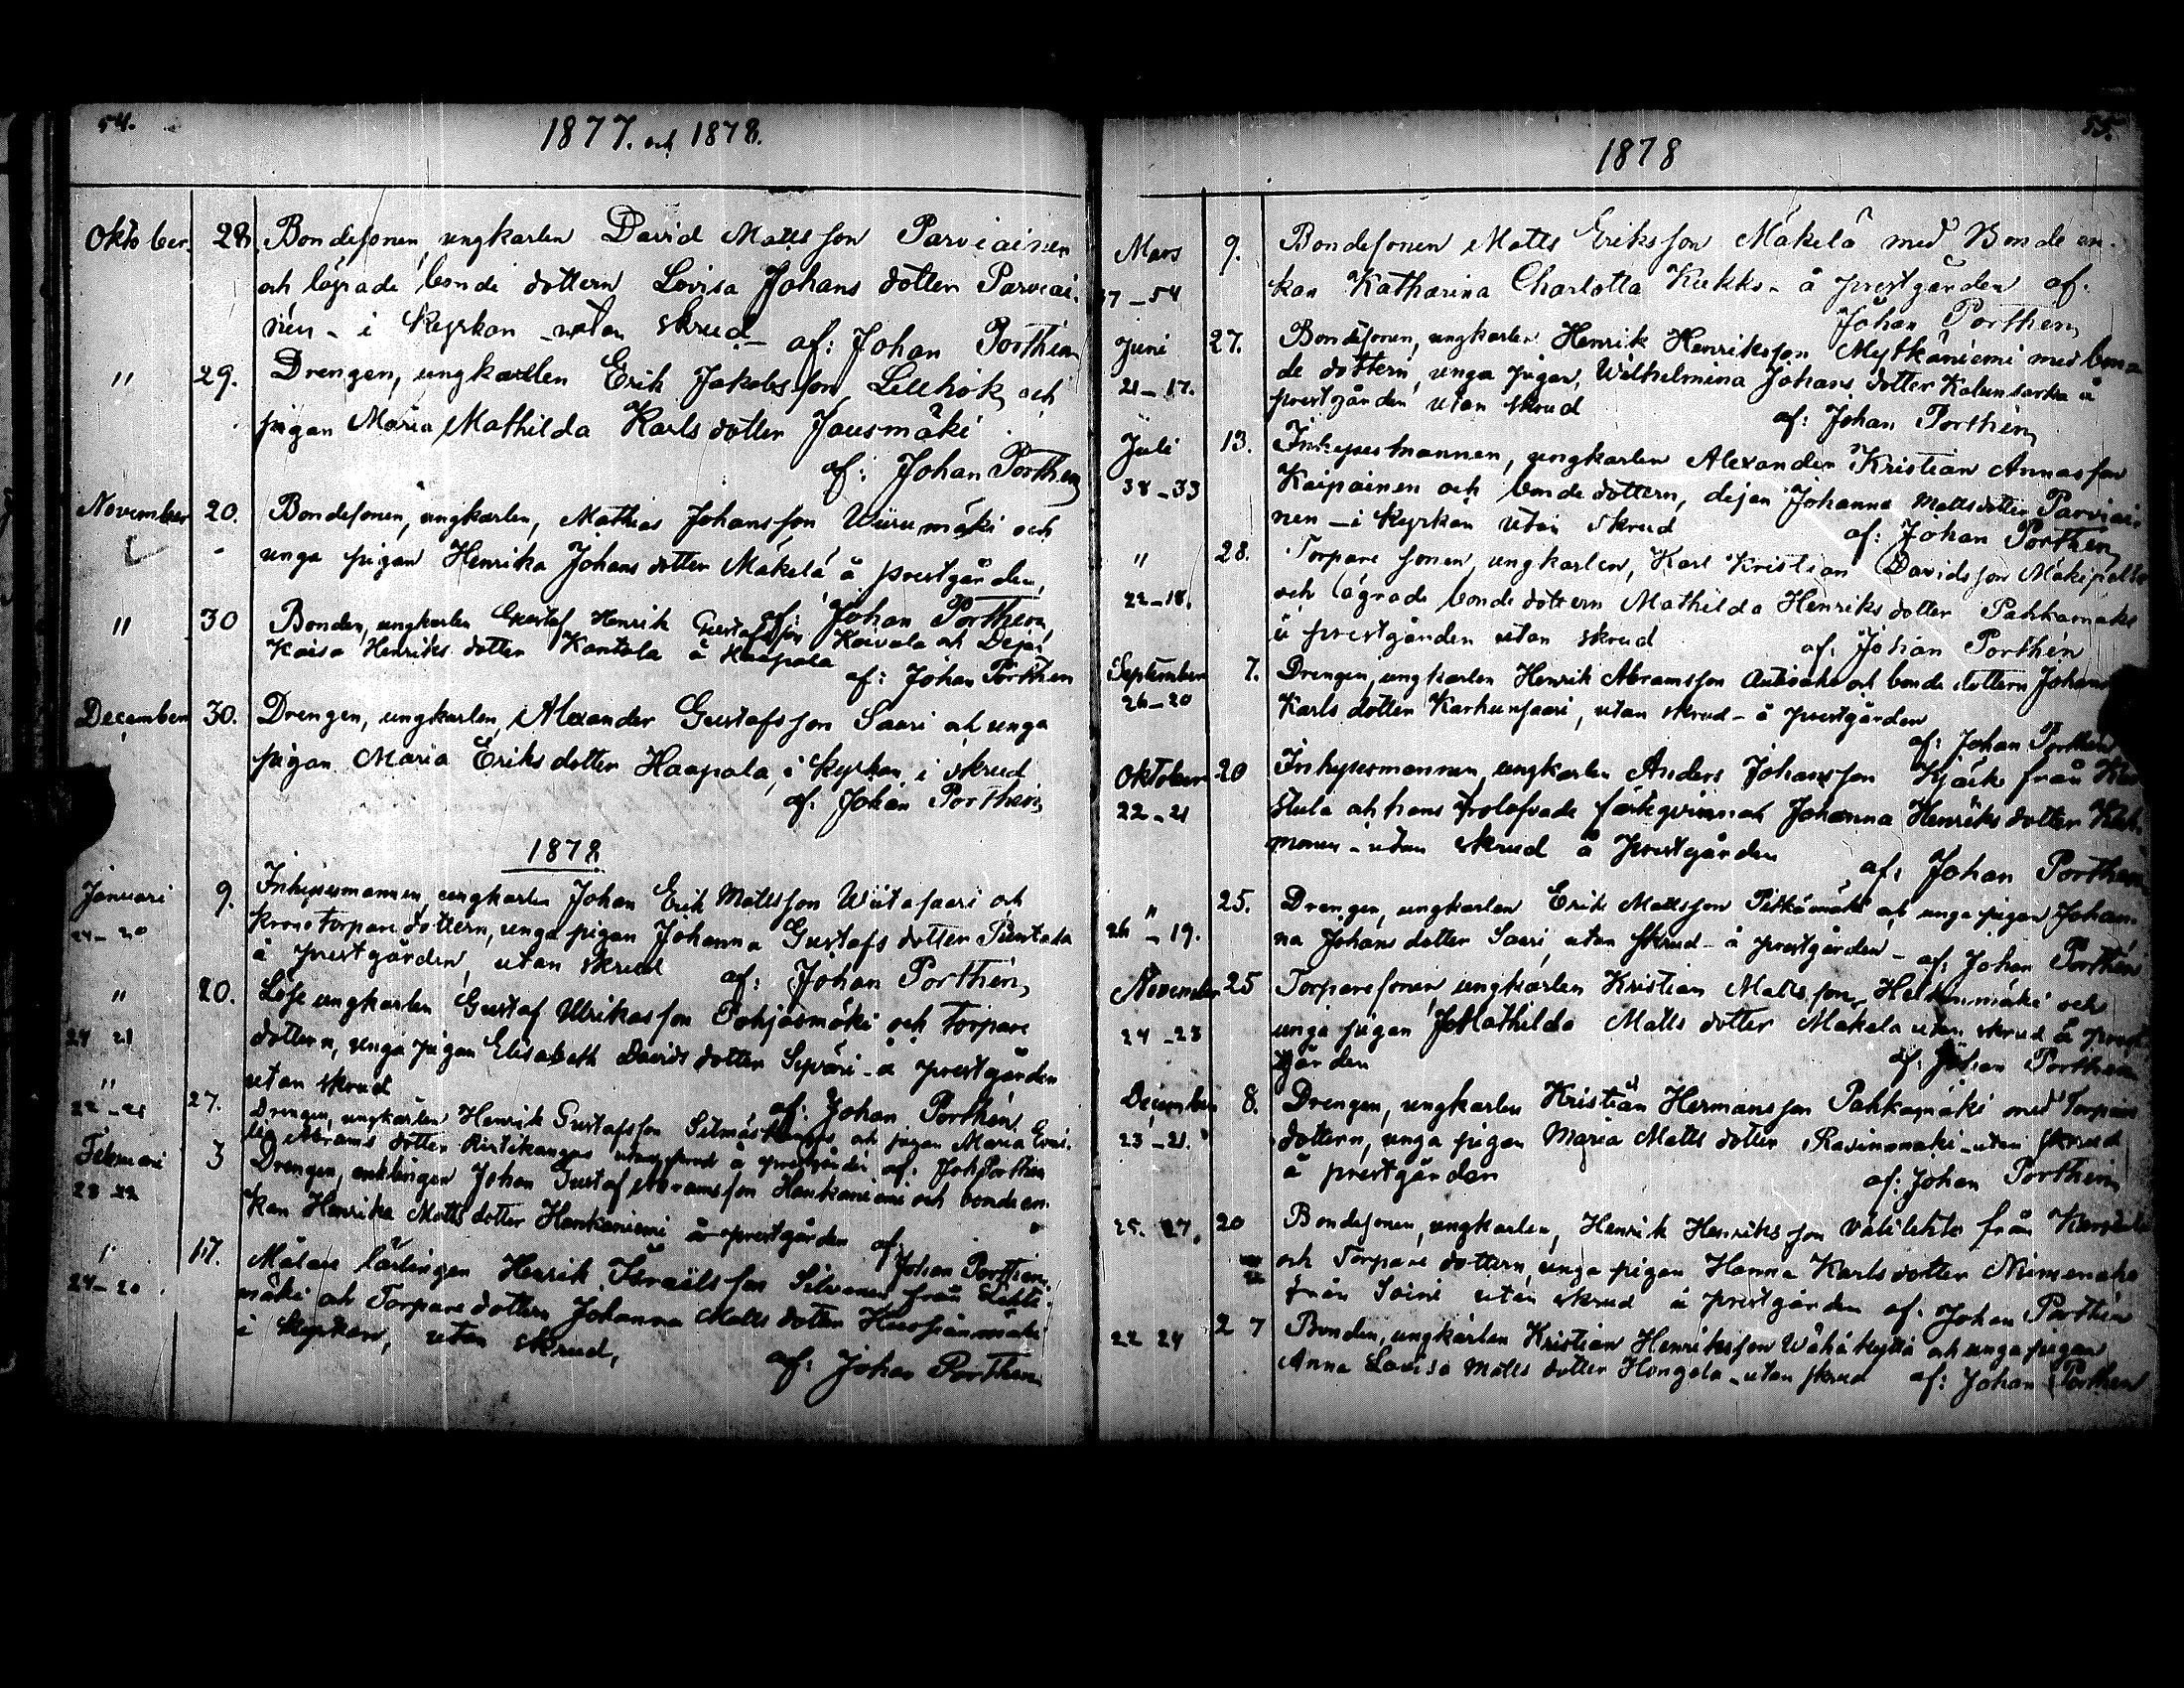 54.
1877. och 1878.
Oktober. 28. Bondesonen, ungkarlen David Mattsson Parviainen
och lägrade bonde dottern Lovisa Johans dotter Parviai-
nen - i Kyrkan - utan skrud - af: Johan Porthen
" 29. Drengen, ungkarlen Erik Jakobsson Lillhök och
pigan Maria Mathilda Karls dotter Jausmäki
af: Johan Porthen
November 20. Bondesonen, ungkarlen, Mathias Johansson Wiirumäki och
unga pigan Henrika Johans dotter Mäkelä å prestgården,
af: Johan Porthen
" 30 Bonden, ungkarlen Gustaf Henrik Gustafsson Koivula och Dejan
Kaisa Henriks dotter Kantola å Haapala
af: Johan Porthen
December 30. Drengen, ungkarlen, Alexander Gustafsson Saari och unga
pigan Maria Eriks dotter Haapala, i Kyrkan, i skrud
af: Johan Porthen
1878.
Januari 9. Inhysesmannen, ungkarlen Johan Erik Mattsson Wiitasaari och
24-20 krono torpare dottern, unga pigan Johanna Gustafs dotter Puntala
å prestgården, utan skrud af: Johan Porthen
" 20. Löse ungkarlen Gustaf Ulrikasson Pohjasmäki och torpare
24 21 dottern, unga pigan Elisabeth Davids dotter Sepväri - å prestgården
utan skrud af: Johan Porthen
" 27. Drengen, ungkarlen Henrik Gustafsson och pigan Maria Emi-
22-21 lia Abrams dotter Ristikangas utan skrud å prestgården af: Joh Porthen
Februari 3 Drengen, enklingen Johan Gustaf Abramsson Haukaniemi och bonde en-
28-22 kan Henrika Matts dotter Hankaniemi å prestgården af:
Johan Porthen
" 17. Målare lärlingen Henrik Israëlsson Silvenen från Lehti-
24-20 mäki och Torpare dottern Johanna Matts dotter Huosianmäki
i Kyrkan, utan skrud,
af: Johan Porthen
55.
1878
Mars 9. Bondesonen Matts Eriksson Mäkelä med Bonde en-
37-54 kan Katharina Charlotta Kukko - å prestgården af.
Johan Porthen
Juni 27. Bondesonen, ungkarlen Henrik Henriksson Mytkäniemi med bon-
21-17. de dottern, unga pigan, Wilhelmina Johans dotter å
prestgården utan skrud af: Johan Porthen
Juli 13. Inhysesmannen, ungkarlen Alexander Kristian Annasson
38-33 Kaipainen och bonde dottern, dejan Johanna Mattsdotter Parviai-
nen - i Kyrkan utan skrud af: Johan Porthen
" 28. Torpare sonen, ungkarlen, Karl Kristian Davidsson Mäkipelto
22-18. och lägrade bonde dottern Mathilda Henriks dotter Pahkamäki
å prestgården utan skrud af: Johan Porthen
September 7. Drengen, ungkarlen Henrik Abramsson Autioaho och bonde dottern Johan
26-20 Karls dotter Karhunsaari, utan skrud - å prestgården
af: Johan Porthen
Oktober 20 Inhysesmannen, ungkarlen Anders Johansson Kjäck från
22-21 stula och hans trolofvade fästeqvinnan Johanna Henriks dotter
monen - utan skrud å prestgården
af: Johan Porthen
" 25. Drengen, ungkarlen Erik Mattsson Pitkämäki och unga pigan Johan-
26-19. na Johans dotter Saari, utan skrud - å prestgården - af: Johan Porthen
November 25 Torparesonen ungkarlen Kristian Mattsson, och
24-23 unga pigan Mathilda Matts dotter Makela utan skrud å prest-
gården af: Johan Porthen
December 8. Drengen, ungkarlen Kristian Hermansson Pahkamäki med Torpare
23-21. dottern, unga pigan Maria Matts dotter Rasinmäki - utan skrud
å prestgården af: Johan Porthen
25. 27. 20 Bondesonen, ungkarlen, Henrik Henriksson Välilehto från
och Torpare dottern, unga pigan Hanna Karls dotter Niinenaho
från Soini utan skrud å prestgården af: Johan Porthen
22 24 27 Bonden, ungkarlen Kristian Henriksson Wähäkyttä och unga pigan
Anna Lovisa Matts dotter Hongola - utan skrud af: Johan Porthen